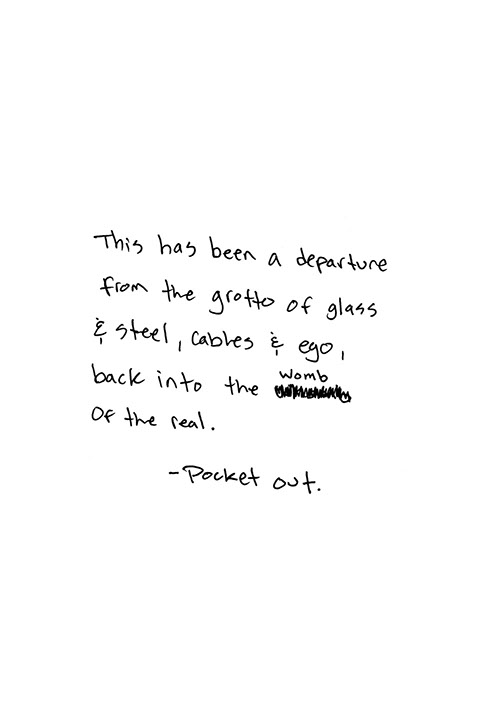 This has been a departure
from the grotto of glass
& steel, cables & ego,
back into the womb
Of the real.
-Pocket out.